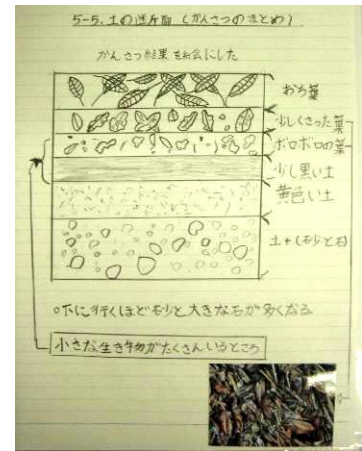 5-5. 土の断面 (かんさつのまとめ)
かんさつ結果を絵にした
おち葉
少しくさった葉
ボロボロの葉
少し黒い土
黄色い土
土+(砂と石)
○下に行くほど砂と大きな石が多くなる
小さな生き物がたくさんいるところ